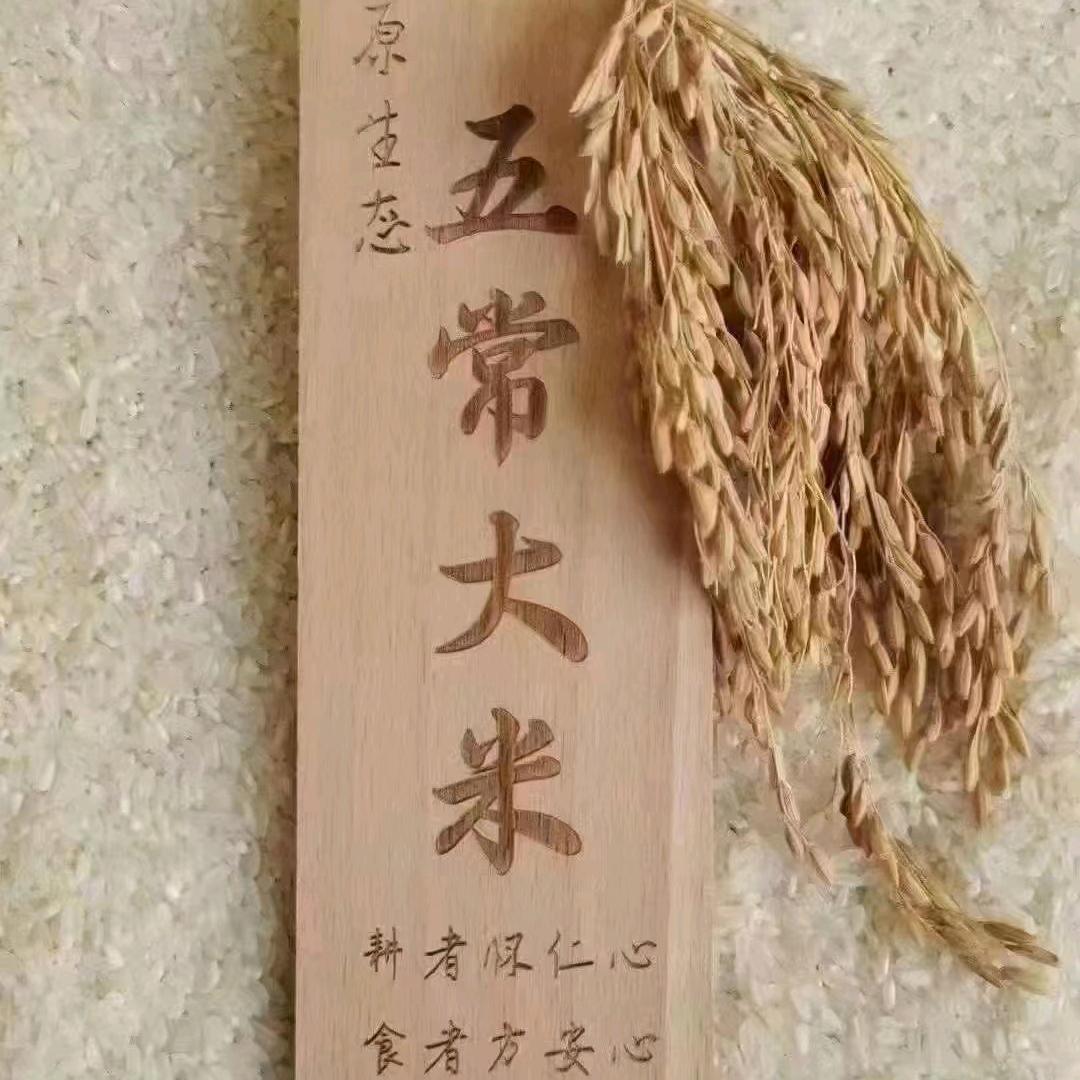 原生态
五常大米
耕者保仁心
食者方安心